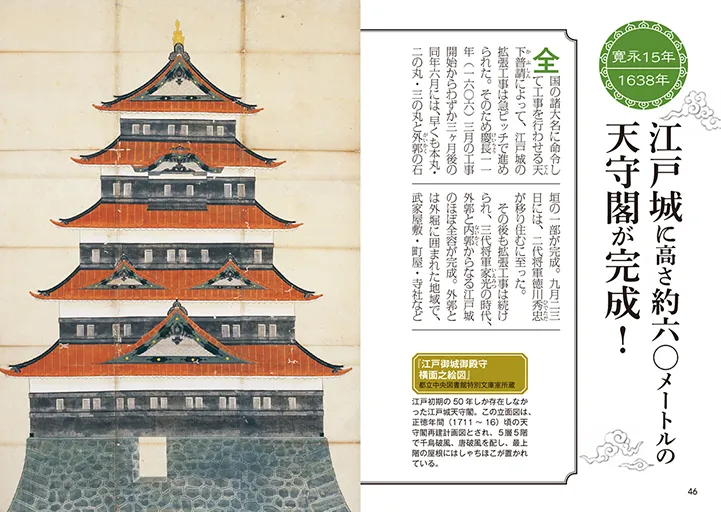 寛永15年
1638年
江戸城に高さ約六〇メートルの
天守閣が完成！
全国の諸大名に命令し
て工事を行わせる天
下普請によって、江戸城の
拡張工事は急ピッチで進め
られた。そのため慶長一一
年（一六〇六）三月の工事
開始からわずか三ヶ月後の
同年六月には、早くも本丸・
二の丸・三の丸と外郭の石
垣の一部が完成。九月二三
日には、二代将軍徳川秀忠
が移り住むに至った。
その後も拡張工事は続け
られ、三代将軍家光の時代、
外郭と内郭からなる江戸城
のほぼ全容が完成。外郭と
は外堀に囲まれた地域で、
武家屋敷・町屋・寺社など
『江戸御城御殿守
横面之絵図』
都立中央図書館特別文庫室所蔵
江戸初期の50年しか存在しなか
った江戸城天守閣。この立面図は、
正徳年間（1711～16）頃の天
守閣再建計画図とされ、5層5階
で千鳥破風、唐破風を配し、最上
階の屋根にはしゃちほこが置かれ
ている。
46